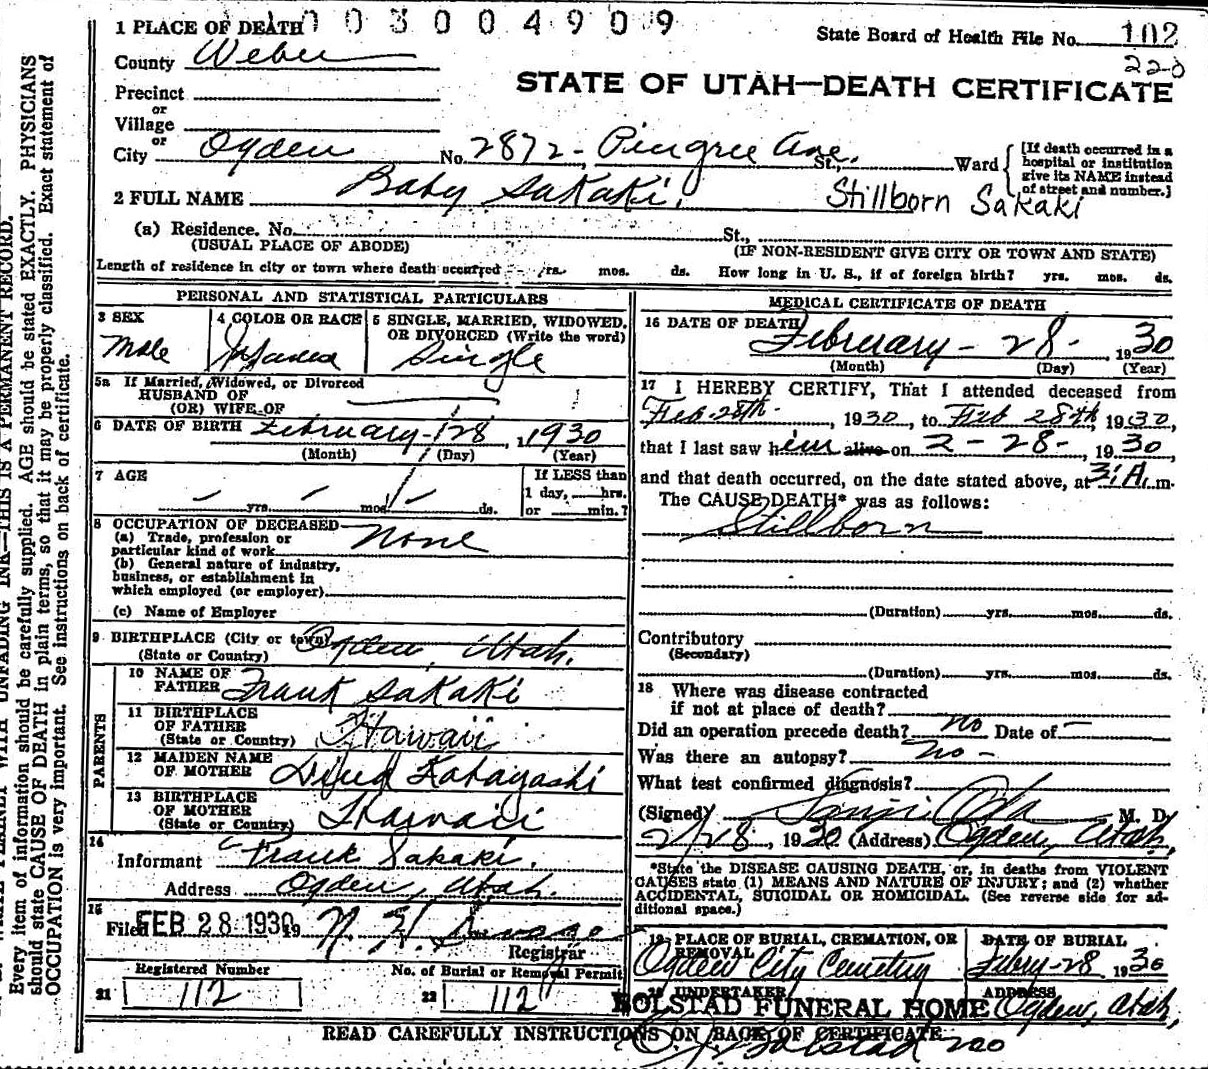 1 PLACE OF DEATH 003004909
State Board of Health File No. 102
220
County Weber
STATE OF UTAH—DEATH CERTIFICATE
Precinct
or
Village
or
City Ogden No. 2872 - Pingree Ave. St., Ward
[If death occurred in a
hospital or institution
give its NAME instead
of street and number.]
2 FULL NAME Baby Sakaki. Stillborn Sakaki
(a) Residence. No. St.,
(USUAL PLACE OF ABODE) (IF NON-RESIDENT GIVE CITY OR TOWN AND STATE)
Length of residence in city or town where death occurred yrs. mos. ds. How long in U. S., if of foreign birth? yrs. mos. ds.
PERSONAL AND STATISTICAL PARTICULARS
3 SEX
Male
4 COLOR OR RACE
5 SINGLE, MARRIED, WIDOWED,
OR DIVORCED (Write the word)
Single
5a If Married, Widowed, or Divorced
HUSBAND OF
(OR) WIFE OF
6 DATE OF BIRTH February - 28, 1930
(Month) (Day) (Year)
7 AGE
yrs. mos. ds.
If LESS than
1 day, hrs.
or min.?
8 OCCUPATION OF DECEASED
(a) Trade, profession or
particular kind of work None
(b) General nature of industry,
business, or establishment in
which employed (or employer)
(c) Name of Employer
9 BIRTHPLACE (City or town) Ogden, Utah.
(State or Country)
PARENTS
10 NAME OF
FATHER Frank Sakaki
11 BIRTHPLACE
OF FATHER
(State or Country) Hawaii
12 MAIDEN NAME
OF MOTHER Kobayashi
13 BIRTHPLACE
OF MOTHER
(State or Country) Hawaii
14
Informant Frank Sakaki.
Address Ogden, Utah.
15
Filed FEB 28 1930 19
Registrar
Registered Number
21 112
No. of Burial or Removal Permit
22 112
MEDICAL CERTIFICATE OF DEATH
16 DATE OF DEATH
February - 28 - , 1930
(Month) (Day) (Year)
17 I HEREBY CERTIFY, That I attended deceased from
Feb 28th - , 1930, to Feb 28th, 1930,
that I last saw him alive on 2 - 28 - , 1930
and that death occurred, on the date stated above, at 3:A.m.
The CAUSE DEATH* was as follows:
Stillborn
(Duration) yrs. mos. ds.
Contributory
(Secondary)
(Duration) yrs. mos. ds.
18 Where was disease contracted
if not at place of death?
Did an operation precede death? no Date of —
Was there an autopsy? no -
What test confirmed diagnosis?
(Signed) M. D.
2/28, 1930 (Address) Ogden, Utah.
*State the DISEASE CAUSING DEATH, or, in deaths from VIOLENT
CAUSES state (1) MEANS AND NATURE OF INJURY; and (2) whether
ACCIDENTAL, SUICIDAL OR HOMICIDAL. (See reverse side for ad-
ditional space.)
19 PLACE OF BURIAL, CREMATION, OR
REMOVAL
Ogden City Cemetery
DATE OF BURIAL
Febry-28 1930
20 UNDERTAKER
BOLSTAD FUNERAL HOME
ADDRESS
Ogden, Utah,
READ CAREFULLY INSTRUCTIONS ON BACK OF CERTIFICATE
Bolstad 200
Every item of information should be carefully supplied. AGE should be stated EXACTLY. PHYSICIANS
should state CAUSE OF DEATH in plain terms, so that it may be properly classified. Exact statement of
OCCUPATION is very important. See instructions on back of certificate.
WRITE PLAINLY WITH UNFADING INK—THIS IS A PERMANENT RECORD.